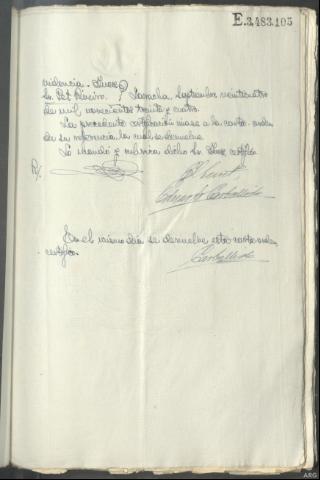 E.3,483,105
videncia. Juez
Sr. Pet Piñeiro. } Lamela, Septiembre veinticuatro
de mil novecientos treinta y cuatro.
La precedente certificación únase a la carta-orden
de su referencia la cual se devuelve
Lo mandó y rubrica dicho Sr. Juez certifico.
R/.
Eduardo Carballido
En el mismo día se devuelve esta carta orden
certifico.
Carballido
ARG